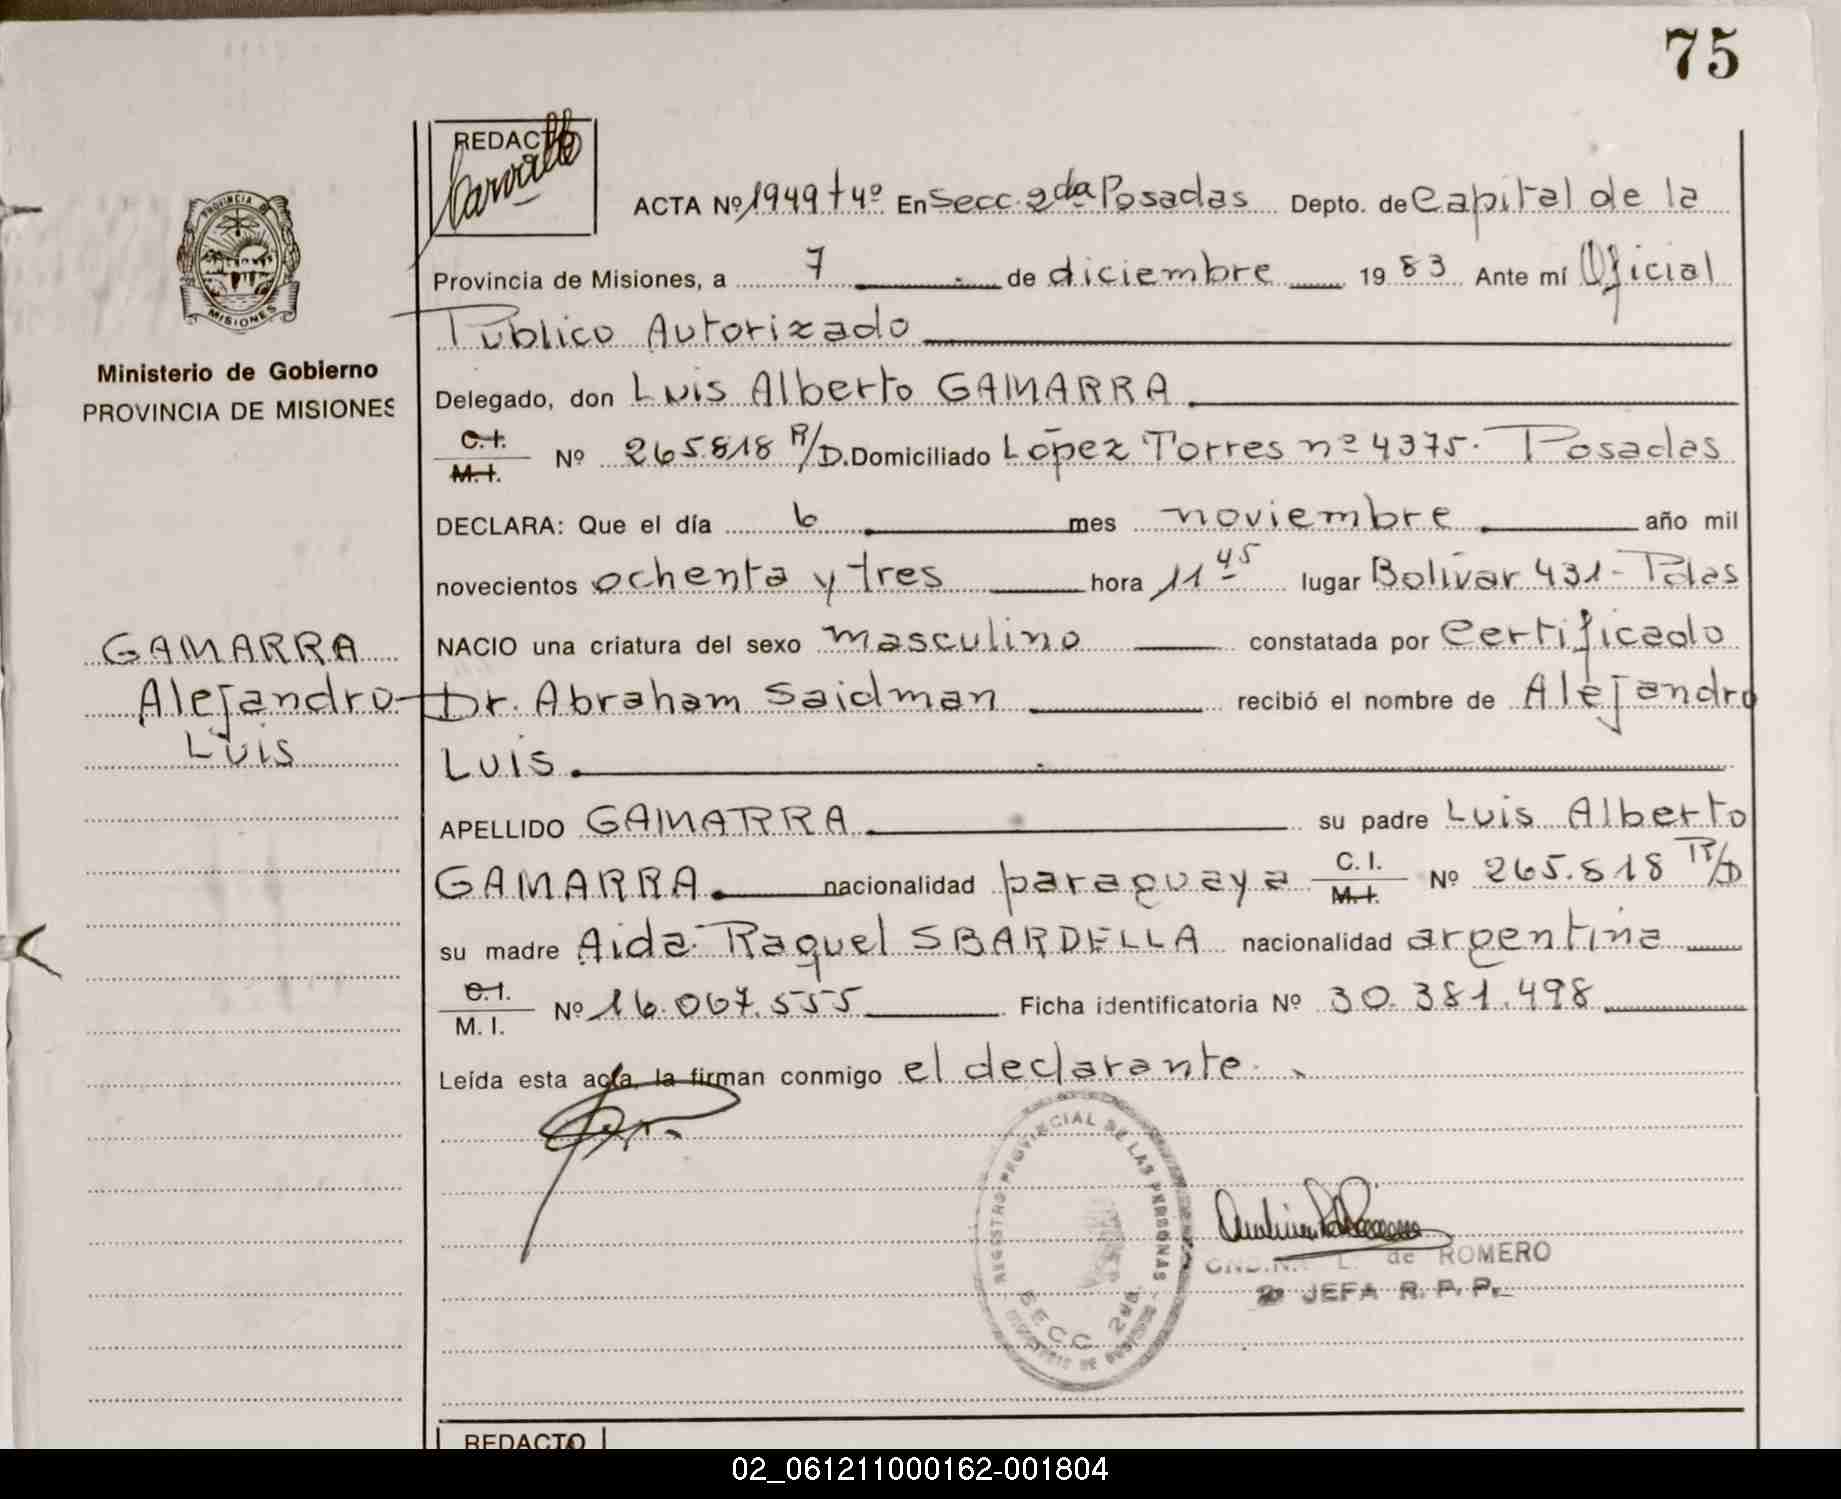 75
REDACTO
ACTA Nº 1949 t 4º En Secc. 2da Posadas Depto. de Capital de la
Provincia de Misiones, a 7 de diciembre 1983 Ante mí Oficial
Público Autorizado
PROVINCIA DE
MISIONES
Ministerio de Gobierno
PROVINCIA DE MISIONES
Delegado, don Luis Alberto GAMARRA
C.I.
M.I. Nº 265.818 R/D. Domiciliado López Torres nº 4375. Posadas
DECLARA: Que el día 6 mes noviembre año mil
novecientos ochenta y tres hora 11 45 lugar Bolívar 431 - Pdas
GAMARRA
Alejandro
Luis
NACIO una criatura del sexo masculino constatada por Certificado
Dr. Abraham Saidman recibió el nombre de Alejandro
Luis
APELLIDO GAMARRA su padre Luis Alberto
GAMARRA nacionalidad paraguaya C. I.
M.I. Nº 265.818 R/D
su madre Aida Raquel SBARDELLA nacionalidad argentina
C.I.
M. I. Nº 16.067.555 Ficha identificatoria Nº 30.381.498
Leída esta acta, la firman conmigo el declarante.
REGISTRO PROVINCIAL DE LAS PERSONAS
SECC. 2da.
de ROMERO
JEFA R. P. P.
REDACTO
02_061211000162-001804